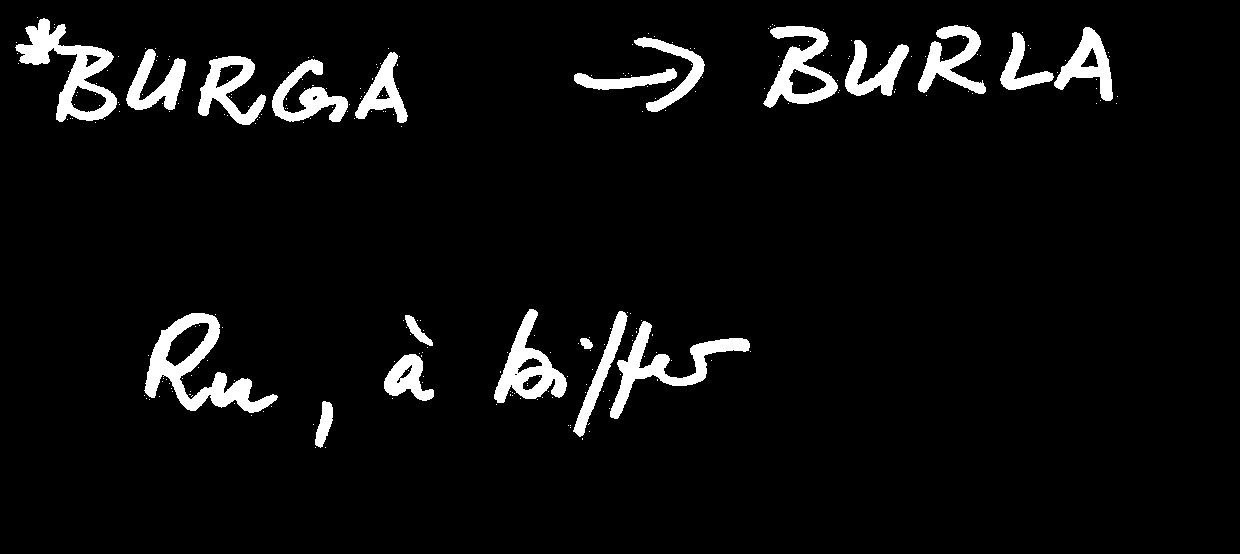 *BURGA → BURLA
Ru, à biffer